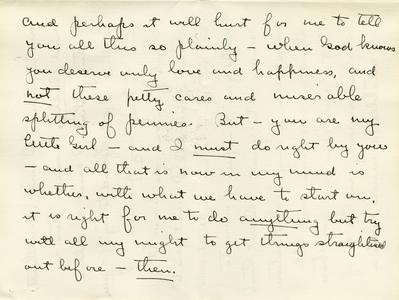 and perhaps it will hurt for me to tell
you all this so plainly – when God knows
you deserve only love and happiness, and
not these petty cares and miserable
splitting of pennies. But – you are my
little Girl – and I must do right by you
– and all that is now in my mind is
whether, with what we have to start on,
it is right for me to do anything but try
with all my might to get things straightened
out before – then.